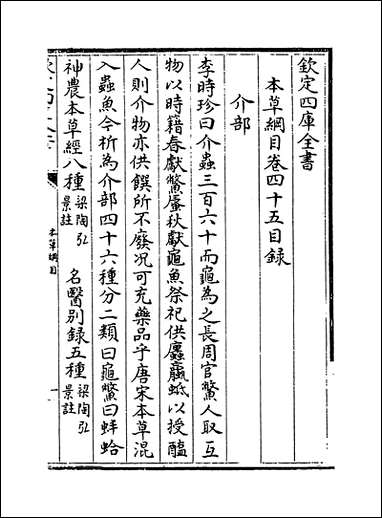 欽定四庫全書
本草綱目卷四十五目録
介部
李時珍曰介蟲三百六十而龜為之長周官鼈人取互
物以時籍春獻鼈蜃秋獻龜魚祭祀供蠯蠃蚳以授醢
人則介物亦供饌所不廢况可充藥品乎唐宋本草混
入蟲魚今析為介部四十六種分二類曰龜鼈曰蚌蛤
神農本草經八種梁陶弘景註 名醫别録五種梁陶弘景註
本草綱目
一